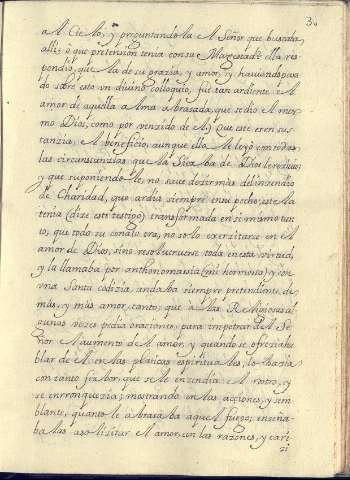 3.
al Cielo, y preguntandola el Señor que buscaba
alli, o que pretension tenia con su Magestad? ella res-
pondio, que la de su grazia, y amor, y haviendo pasa
do sobre esto un divino colloquio, fue tan ardiente el
amor de aquella alma abrasada, que se dio el mis-
mo Dios, como por venzido de el,
tanzia el beneficio, aunque ella le leyó con todas
las circunstanzias que la Sierba de Dios le refirio;
y que suponiendole, no hace dezir mas del inzendio
de Charidad, que ardia siempre en su pecho; este la
tenia (dize este testigo) transformada en si mismo tan-
to, que todo su conato era, no solo exerzitarse en el
amor de Dios, sino resolverse toda en esta virtud,
y la llamaba por anthonomasia (mi hermosa) y con
vna santa codizia andaba siempre pretendiente de
mas, y mas amor, tanto, que a las Religiosas al
gunas vezes pedia oraciones, para impetrar del Se-
ñor el aumento del amor, y quando se ofrezia ha-
blar de el en las platicas espirituales, lo hazia
con tanto fervor, que se le enzendia el rostro, y
se enrronquezia; mostrando en las acciones, y sem
blante, quanto le abrasaba aquel fuego; enseña-
balas a solizitar el amor, con las razones, y cari-
zi